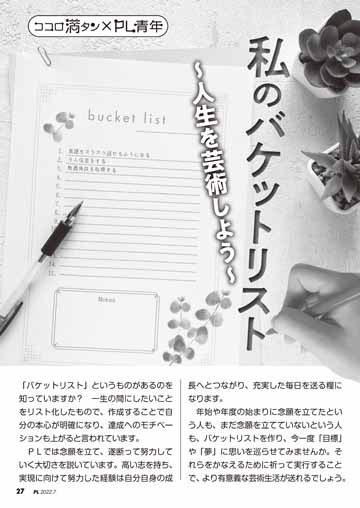 ココロ満タン×PL青年
私のバケットリスト
〜人生を芸術しよう〜
bucket list
1. 英語をスラスラ話せるようになる
3. 教員免許を取得する
Notes
「バケットリスト」というものがあるのを
知っていますか？　一生の間にしたいこと
をリスト化したもので、作成することで自
分の本心が明確になり、達成へのモチベー
ションも上がると言われています。
　ＰＬでは念願を立て、遂断って努力して
いく大切さを説いています。高い志を持ち、
実現に向けて努力した経験は自分自身の成
長へとつながり、充実した毎日を送る糧に
なります。
　年始や年度の始まりに念願を立てたとい
う人も、まだ念願を立てていないという人
も、バケットリストを作り、今一度「目標」
や「夢」に思いを巡らせてみませんか。そ
れらをかなえるために祈って実行すること
で、より有意義な芸術生活が送れるでしょう。
27 PL 2022.7